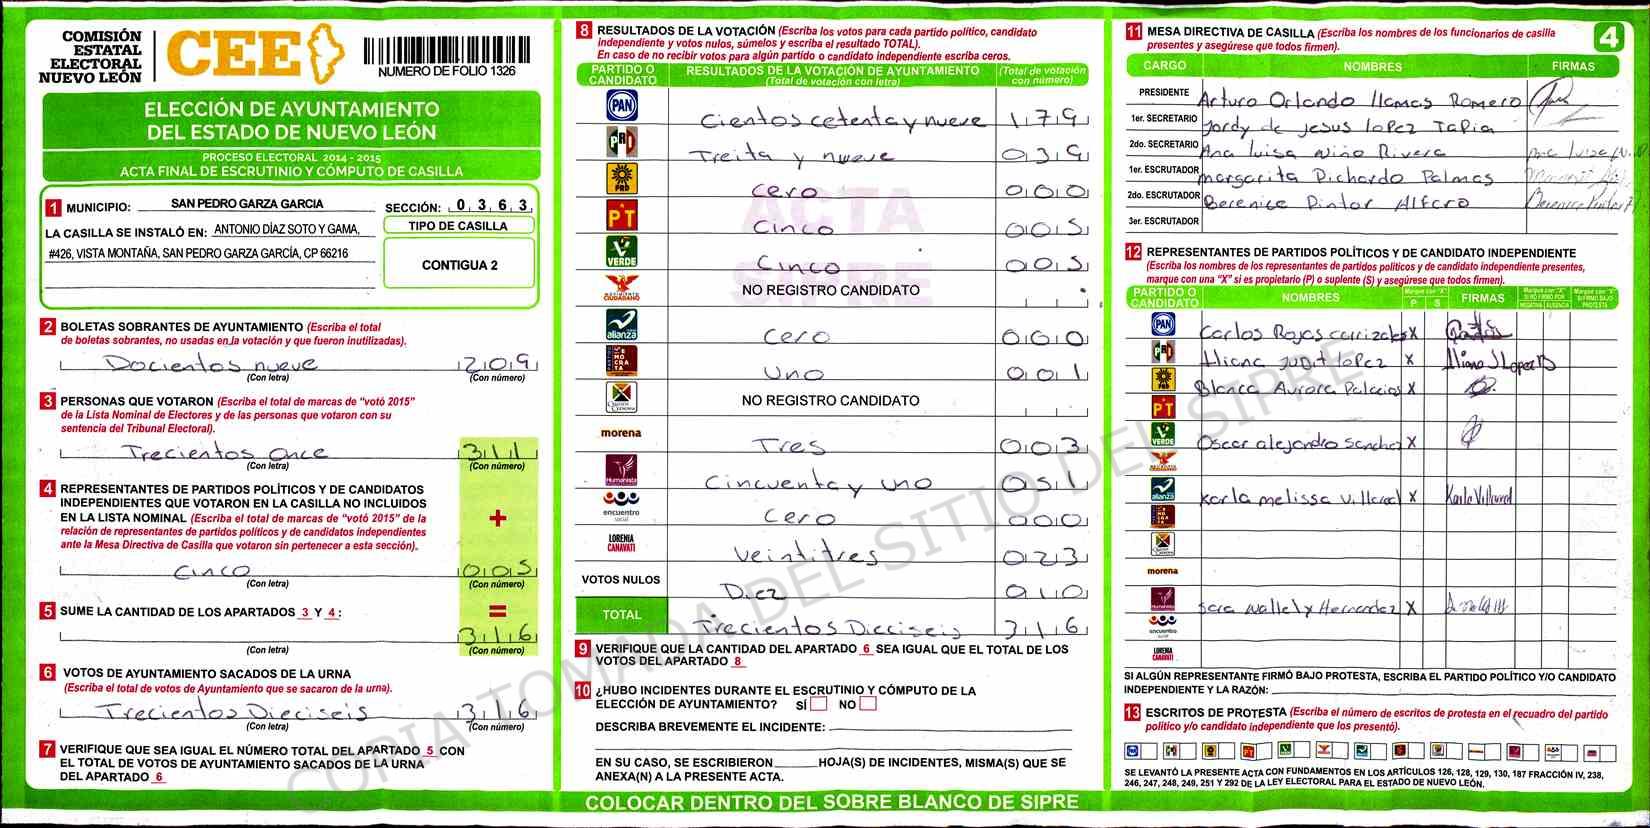 COMISIÓN
ESTATAL
ELECTORAL
NUEVO LEÓN
CEE
NUMERO DE FOLIO 1326
ELECCIÓN DE AYUNTAMIENTO
DEL ESTADO DE NUEVO LEÓN
PROCESO ELECTORAL 2014 - 2015
ACTA FINAL DE ESCRUTINIO Y CÓMPUTO DE CASILLA
1 MUNICIPIO: SAN PEDRO GARZA GARCIA SECCIÓN: 0 3 6 3
LA CASILLA SE INSTALÓ EN: ANTONIO DÍAZ SOTO Y GAMA,
#426, VISTA MONTAÑA, SAN PEDRO GARZA GARCÍA, CP 66216
TIPO DE CASILLA
CONTIGUA 2
2 BOLETAS SOBRANTES DE AYUNTAMIENTO (Escriba el total
de boletas sobrantes, no usadas en la votación y que fueron inutilizadas).
Docientos nueve 209
(Con letra) (Con número)
3 PERSONAS QUE VOTARON (Escriba el total de marcas de "votó 2015"
de la Lista Nominal de Electores y de las personas que votaron con su
sentencia del Tribunal Electoral).
Trecientos Once 311
(Con letra) (Con número)
4 REPRESENTANTES DE PARTIDOS POLÍTICOS Y DE CANDIDATOS
INDEPENDIENTES QUE VOTARON EN LA CASILLA NO INCLUIDOS
EN LA LISTA NOMINAL (Escriba el total de marcas de "votó 2015" de la
relación de representantes de partidos políticos y de candidatos independientes
ante la Mesa Directiva de Casilla que votaron sin pertenecer a esta sección).
+
Cinco 005
(Con letra) (Con número)
5 SUME LA CANTIDAD DE LOS APARTADOS 3 Y 4: =
316
(Con letra) (Con número)
6 VOTOS DE AYUNTAMIENTO SACADOS DE LA URNA
(Escriba el total de votos de Ayuntamiento que se sacaron de la urna).
Trecientos Dieciseis 316
(Con letra) (Con número)
7 VERIFIQUE QUE SEA IGUAL EL NÚMERO TOTAL DEL APARTADO 5 CON
EL TOTAL DE VOTOS DE AYUNTAMIENTO SACADOS DE LA URNA
DEL APARTADO 6
8 RESULTADOS DE LA VOTACIÓN (Escriba los votos para cada partido político, candidato
independiente y votos nulos, súmelos y escriba el resultado TOTAL).
En caso de no recibir votos para algún partido o candidato independiente escriba ceros.
PARTIDO O CANDIDATO RESULTADOS DE LA VOTACIÓN DE AYUNTAMIENTO (Total de votación con letra) (Total de votación con número)
PAN Cientos cetenta y nueve 179
PRD Treita y nueve 039
PRD Cero 000
PT Cinco 005
VERDE Cinco 005
MOVIMIENTO CIUDADANO NO REGISTRO CANDIDATO
alianza Cero 000
DEMOCRATA Uno 001
NO REGISTRO CANDIDATO
morena Tres 003
Humanista Cincuenta y uno 051
encuentro social Cero 000
LORENIA CANAVATI Veintitres 023
VOTOS NULOS Diez 010
TOTAL Trecientos Dieciseis 316
ACTA
SIPRE
9 VERIFIQUE QUE LA CANTIDAD DEL APARTADO 6 SEA IGUAL QUE EL TOTAL DE LOS
VOTOS DEL APARTADO 8
10 ¿HUBO INCIDENTES DURANTE EL ESCRUTINIO Y CÓMPUTO DE LA
ELECCIÓN DE AYUNTAMIENTO? SÍ NO
DESCRIBA BREVEMENTE EL INCIDENTE:
EN SU CASO, SE ESCRIBIERON HOJA(S) DE INCIDENTES, MISMA(S) QUE SE
ANEXA(N) A LA PRESENTE ACTA.
COLOCAR DENTRO DEL SOBRE BLANCO DE SIPRE
11 MESA DIRECTIVA DE CASILLA (Escriba los nombres de los funcionarios de casilla
presentes y asegúrese que todos firmen).
4
CARGO NOMBRES FIRMAS
PRESIDENTE Arturo Orlando llamas Romero
1er. SECRETARIO Jordy de Jesus lopez Tapia
2do. SECRETARIO Ana luisa Niño Rivera
1er. ESCRUTADOR Margarita Pichardo Palmas
2do. ESCRUTADOR Berenice Pintor Alfaro
3er. ESCRUTADOR
12 REPRESENTANTES DE PARTIDOS POLÍTICOS Y DE CANDIDATO INDEPENDIENTE
(Escriba los nombres de los representantes de partidos políticos y de candidato independiente presentes,
marque con una "X" si es propietario (P) o suplente (S) y asegúrese que todos firmen).
PARTIDO O CANDIDATO NOMBRES Marque con "X" P S FIRMAS
PAN Carlos Rojas carrizales X
Iliana Judit lopez X Iliana J Lopez
PRD Blanca Aurora Palacios X
PT
VERDE Oscar alejandro sanchez X
alianza Karla melissa villareal X Karla Villarreal
morena
Humanista Sara Nallely Hernandez X
encuentro social
LORENIA CANAVATI
SI ALGÚN REPRESENTANTE FIRMÓ BAJO PROTESTA, ESCRIBA EL PARTIDO POLÍTICO Y/O CANDIDATO
INDEPENDIENTE Y LA RAZÓN:
13 ESCRITOS DE PROTESTA (Escriba el número de escritos de protesta en el recuadro del partido
político y/o candidato independiente que los presentó).
SE LEVANTÓ LA PRESENTE ACTA CON FUNDAMENTOS EN LOS ARTÍCULOS 126, 128, 129, 130, 187 FRACCIÓN IV, 238,
246, 247, 248, 249, 251 Y 292 DE LA LEY ELECTORAL PARA EL ESTADO DE NUEVO LEÓN.
COPIA TOMADA DEL SITIO DEL SIPRE